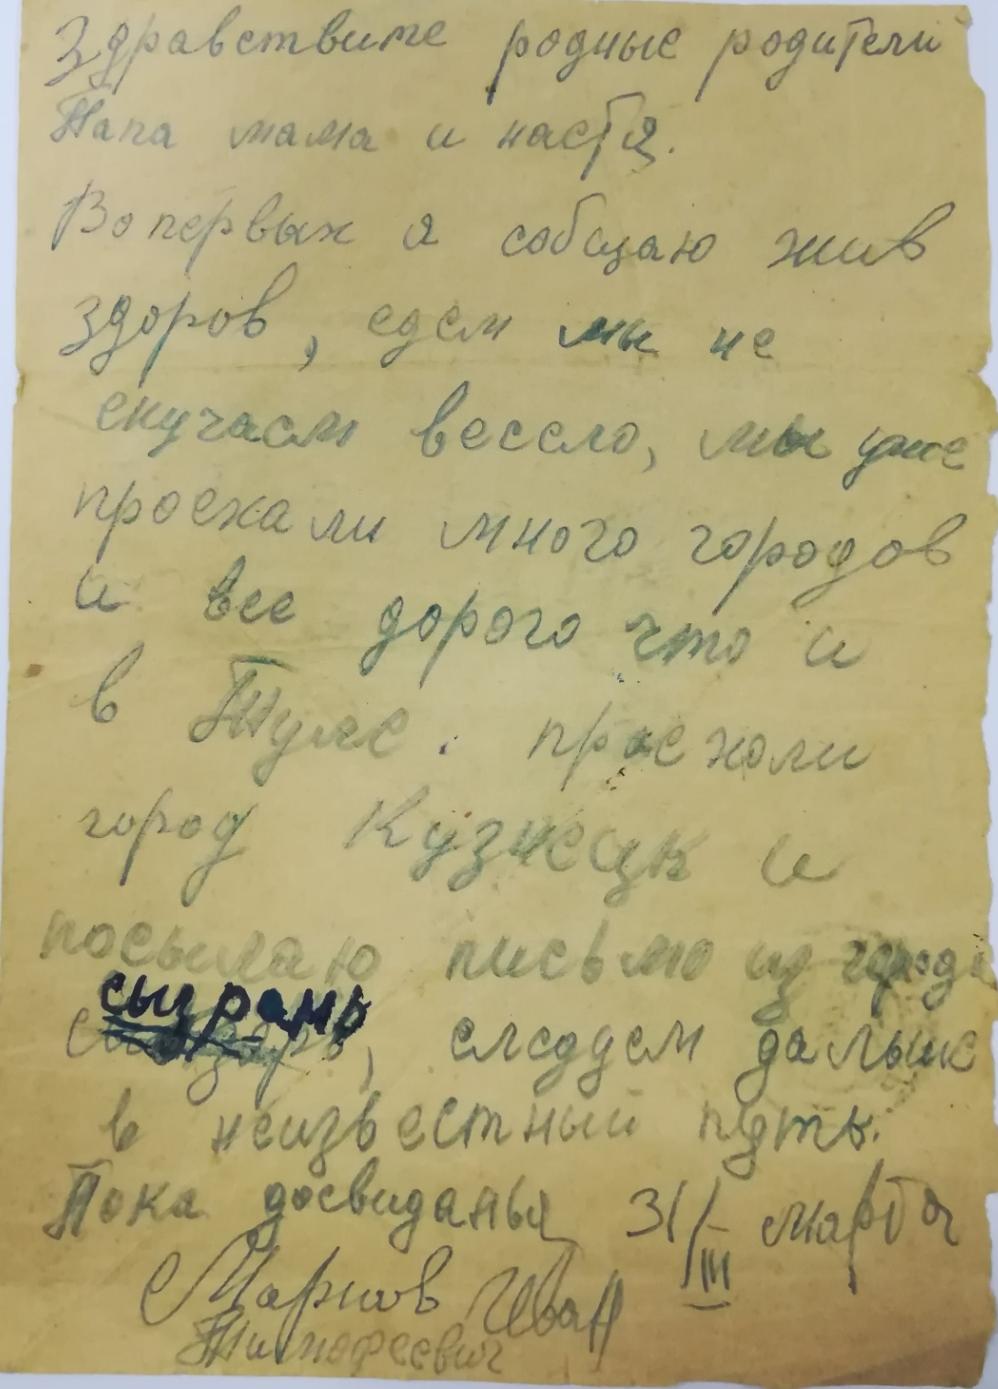 Здравствите родные родители
Папа мама и настя.
Во первых я собщаю жив
здоров, едем мы не
скучаем весело, мы уже
проехали много городов
и все дорого что и
в Туле. проехоли
город Кузнецк и
посылаю письмо из города
сызрань
следдем далыше
в неизвестный путь.
Пока досвиданья 31/III марта
Марков Иван
Тимофеевич